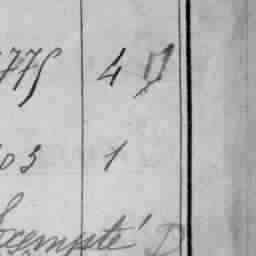 775 4 D
03 1
Exempté D